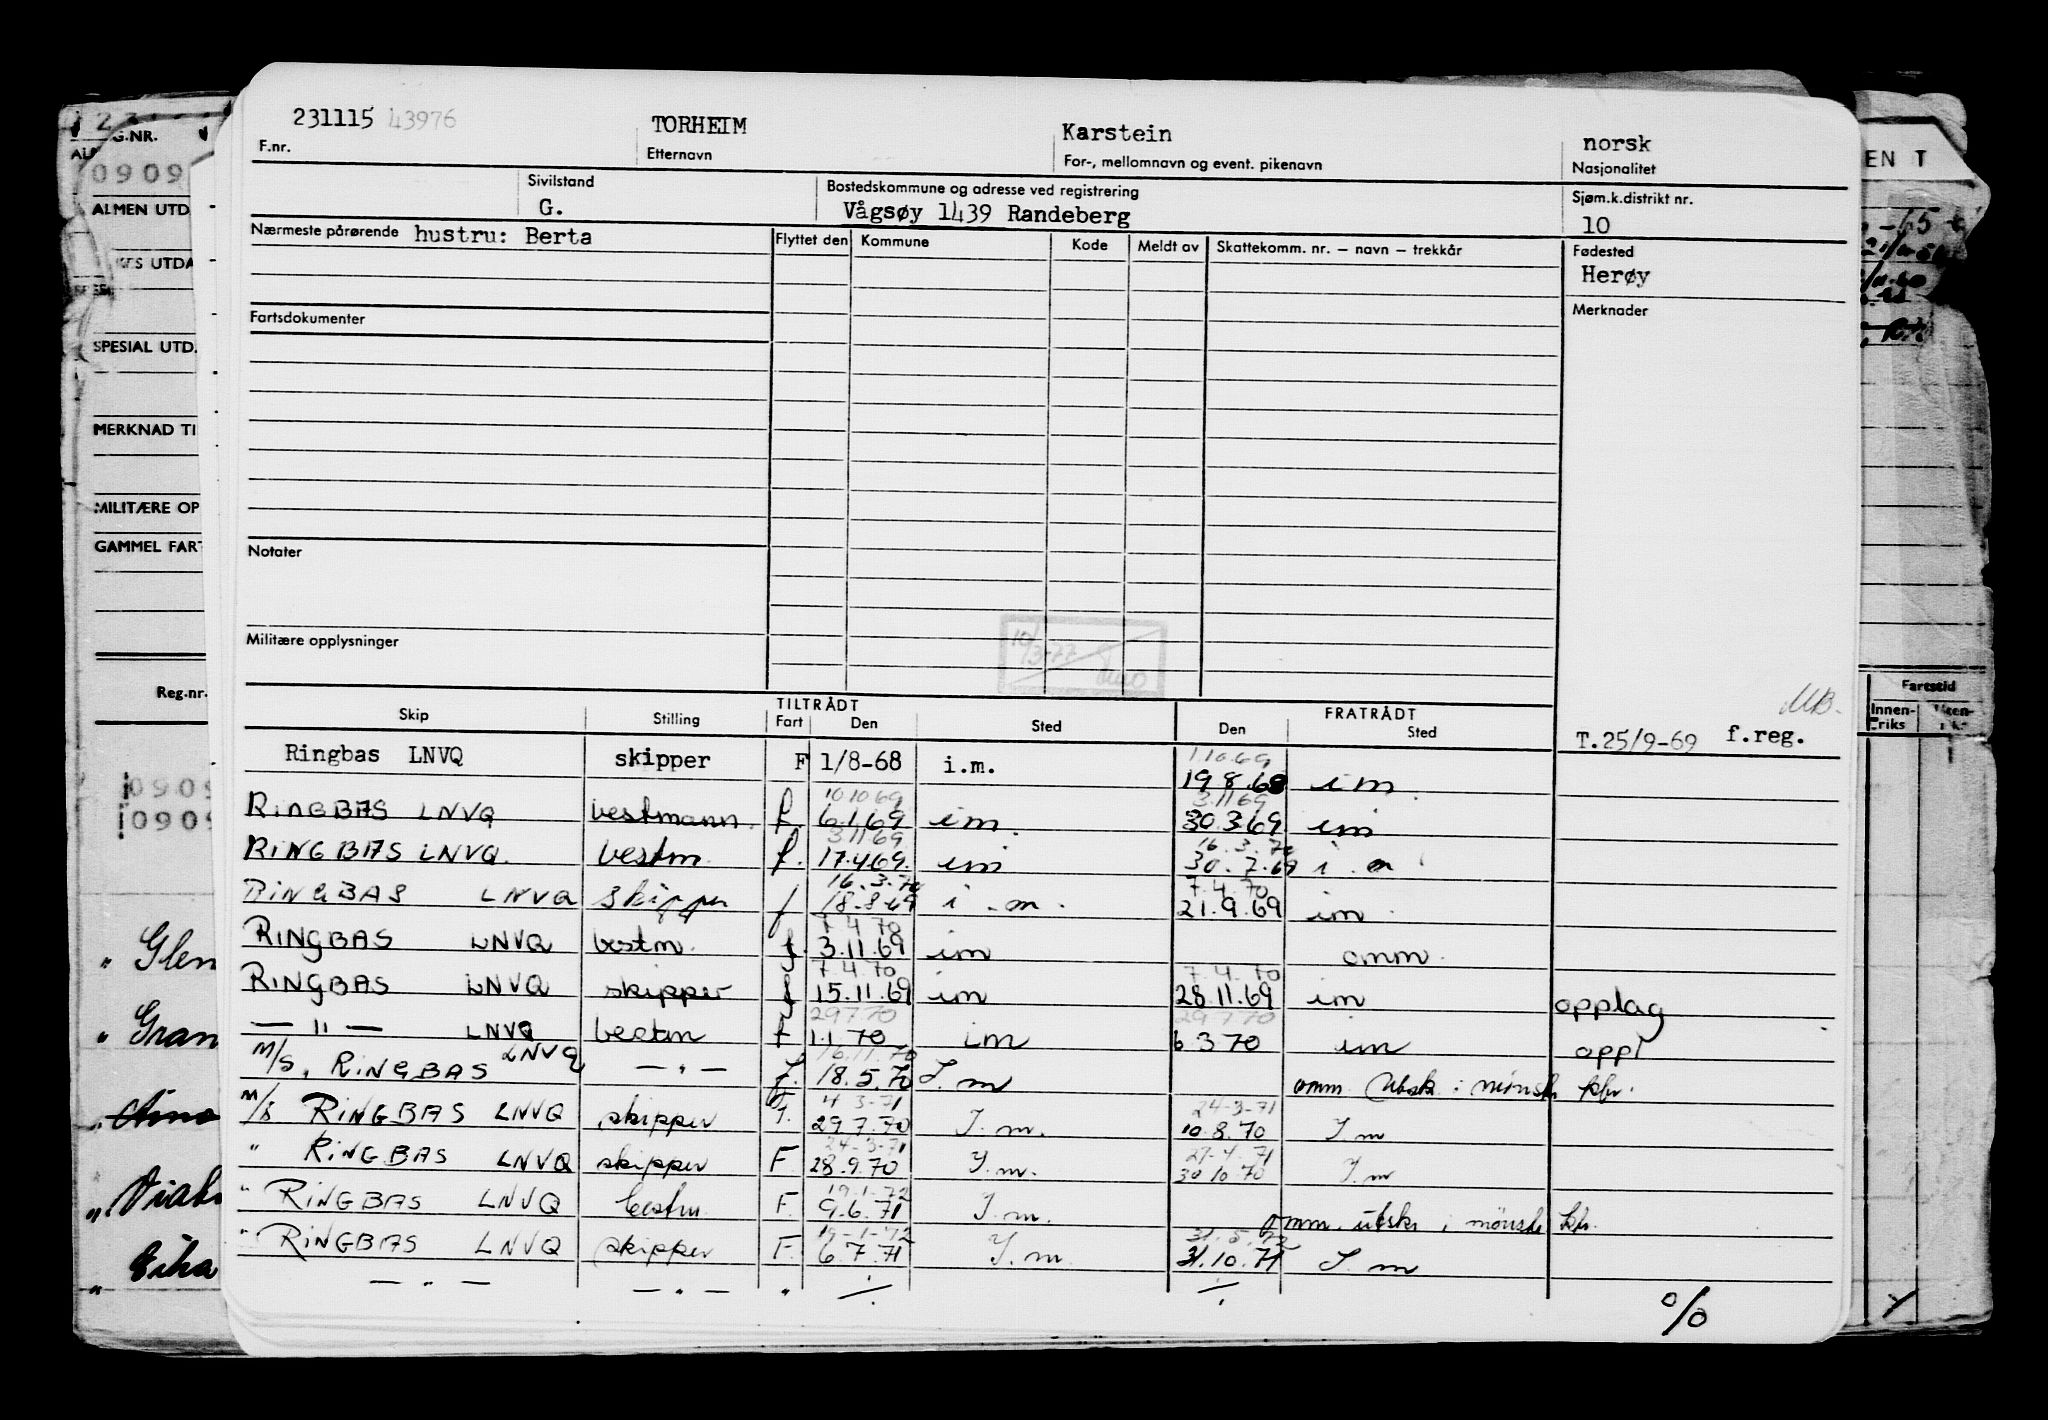 231115 43976 TORHEIM Karstein norsk
F.nr. Etternavn For-, mellomnavn og event. pikenavn Nasjonalitet
Sivilstand Bostedskommune og adresse ved registrering Sjøm.k.distrikt nr.
G. Vågsøy 1439 Randeberg 10
Nærmeste pårørende hustru: Berta Flyttet den Kommune Kode Meldt av Skattekomm. nr. – navn – trekkår Fødested
Herøy
Fartsdokumenter Merknader
Notater
Militære opplysninger
MB.
TILTRÅDT FRATRÅDT
Skip Stilling Fart Den Sted Den Sted
T.25/9-69 f.reg.
1.10.69
Ringbas LNVQ skipper F 1/8-68 i.m. 19.8.68 im.
10.10.69 3.11.69
RINGBAS LNVQ bestmann. f. 6.1.69 im. 30.3.69 im
3.11.69 16.3.70
RINGBAS LNVQ. bestm. f. 17.4.69. im 30.7.69 i.m
16.3.70 7.4.70
RINGBAS LNVQ skipper f 18.8.69 i.m. 21.9.69 im.
7.4.70
RINGBAS LNVQ bestm. f. 3.11.69 im omm.
7.4.70 7.4.70
RINGBAS LNVQ skipper f 15.11.69 im 28.11.69 im opplag
29770 29770
— " — LNVQ bestm f 1.1.70 im 6.3.70 im oppl
16.11.70
M/S, RINGBAS LNVQ — " — f. 18.5.70 I.m omm. utsk. i mønstr kfr.
4-3-71 24-3-71
M/S RINGBAS LNVQ skipper F. 29.7.70 I.m. 10.8.70 I.m
24-3-71 27.4.71
" RINGBAS LNVQ skipper F 28.9.70 I.m. 30.10.70 I.m
19.1.72
" RINGBAS LNVQ bestm. F. 9.6.71 I.m. omm. utskr. i mønstr kfr.
19-1-72 31.5.72
" RINGBAS LNVQ skipper F. 6.7.71 I.m 31.10.71 I.m
— " — — " — " ./. ./.
o/o
G.NR.
0909
ALMEN UTD.
KES UTDA
SPESIAL UTD.
MERKNAD TI
MILITÆRE OP
GAMMEL FART
Reg.nr.
0909
0909
" Glen
" Gran
EN T
Fartstid
Innen-
riks